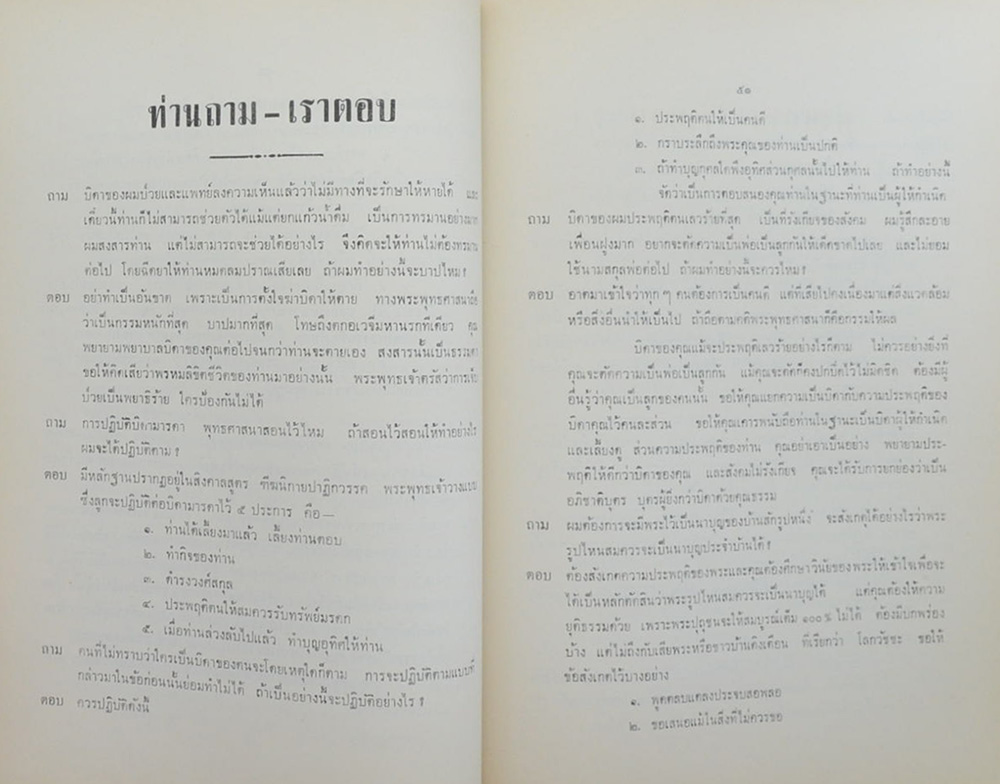 ท่านถาม – เราตอบ
ถาม บิดาของผมป่วยและแพทย์ลงความเห็นแล้วว่าไม่มีทางที่จะรักษาให้หายได้ และ
เดี๋ยวนี้ท่านก็ไม่สามารถช่วยตัวได้แม้แต่ยกแก้วน้ำดื่ม เป็นการทรมานอย่างมาก
ผมสงสารท่าน แต่ไม่สามารถจะช่วยได้อย่างไร จึงคิดจะให้ท่านไม่ต้องทรมาน
ต่อไป โดยฉีดยาให้ท่านหมดลมปราณเสียเลย ถ้าผมทำอย่างนี้จะบาปไหม ?
ตอบ อย่าทำเป็นอันขาด เพราะเป็นการตั้งใจฆ่าบิดาให้ตาย ทางพระพุทธศาสนาถือ
ว่าเป็นกรรมหนักที่สุด บาปมากที่สุด โทษถึงตกอเวจีมหานรกทีเดียว คุณ
พยายามพยาบาลบิดาของคุณต่อไปจนกว่าท่านจะตายเอง สงสารนั้นเป็นธรรมดา
ขอให้คิดเสียว่าพรหมลิขิตชีวิตของท่านมาอย่างนั้น พระพุทธเจ้าตรัสว่าการเจ็บ
ป่วยเป็นพยาธิร้าย ใครป้องกันไม่ได้
ถาม การปฏิบัติบิดามารดา พุทธศาสนาสอนไว้ไหม ถ้าสอนไว้สอนให้ทำอย่างไร
ผมจะได้ปฏิบัติตาม ?
ตอบ มีหลักฐานปรากฏอยู่ในสิงคาลสูตร ทีฆนิกายปาฏิกวรรค พระพุทธเจ้าวางแบบ
ซึ่งลูกจะปฏิบัติต่อบิดามารดาไว้ ๕ ประการ คือ—
๑. ท่านได้เลี้ยงมาแล้ว เลี้ยงท่านตอบ
๒. ทำกิจของท่าน
๓. ดำรงวงศ์สกุล
๔. ประพฤติตนให้สมควรรับทรัพย์มรดก
๕. เมื่อท่านล่วงลับไปแล้ว ทำบุญอุทิศให้ท่าน
ถาม คนที่ไม่ทราบว่าใครเป็นบิดาของตนจะโดยเหตุใดก็ตาม การจะปฏิบัติตามแบบที่
กล่าวมาในข้อก่อนนั้นย่อมทำไม่ได้ ถ้าเป็นอย่างนี้จะปฏิบัติอย่างไร ?
ตอบ ควรปฏิบัติดังนี้
๕๑
๑. ประพฤติตนให้เป็นคนดี
๒. กราบระลึกถึงพระคุณของท่านเป็นปกติ
๓. ถ้าทำบุญกุศลใดพึงอุทิศส่วนกุศลนั้นไปให้ท่าน ถ้าทำอย่างนี้
จัดว่าเป็นการตอบสนองคุณท่านในฐานะที่ท่านเป็นผู้ให้กำเนิด
ถาม บิดาของผมประพฤติตนเลวร้ายที่สุด เป็นที่รังเกียจของสังคม ผมรู้สึกละอาย
เพื่อนฝูงมาก อยากจะตัดความเป็นพ่อเป็นลูกกันให้เด็ดขาดไปเลย และไม่ยอม
ใช้นามสกุลพ่อต่อไป ถ้าผมทำอย่างนี้จะควรไหม ?
ตอบ อาตมาเข้าใจว่าทุก ๆ คนต้องการเป็นคนดี แต่ที่เสียไปคงเนื่องมาแต่สิ่งแวดล้อม
หรือสิ่งอื่นนำให้เป็นไป ถ้าถือตามคติพระพุทธศาสนาก็คือกรรมให้ผล
บิดาของคุณแม้จะประพฤติเลวร้ายอย่างไรก็ตาม ไม่ควรอย่างยิ่งที่
คุณจะตัดความเป็นพ่อเป็นลูกกัน แม้คุณจะตัดก็คงปกปิดไว้ไม่มิดชิด ต้องมีผู้
อื่นรู้ว่าคุณเป็นลูกของคนนั้น ขอให้คุณแยกความเป็นบิดากับความประพฤติของ
บิดาคุณไว้คนละส่วน ขอให้คุณเคารพนับถือท่านในฐานะเป็นบิดาผู้ให้กำเนิด
และเลี้ยงดู ส่วนความประพฤติของท่าน คุณอย่าเอาเป็นอย่าง พยายามประ-
พฤติให้ดีกว่าบิดาของคุณ และสังคมไม่รังเกียจ คุณจะได้รับการยกย่องว่าเป็น
อภิชาติบุตร บุตรผู้ยิ่งกว่าบิดาด้วยคุณธรรม
ถาม ผมต้องการจะมีพระไว้เป็นนาบุญของบ้านสักรูปหนึ่ง จะสังเกตได้อย่างไรว่าพระ
รูปไหนสมควรจะเป็นนาบุญประจำบ้านได้ ?
ตอบ ต้องสังเกตความประพฤติของพระและคุณต้องศึกษาวินัยของพระให้เข้าใจเพื่อจะ
ได้เป็นหลักตัดสินว่าพระรูปไหนสมควรจะเป็นนาบุญได้ แต่คุณต้องให้ความ
ยุติธรรมด้วย เพราะพระปุถุชนจะให้สมบูรณ์เต็ม ๑๐๐% ไม่ได้ ต้องมีบกพร่อง
บ้าง แต่ไม่ถึงกับเสียพระหรือชาวบ้านติงเตือน ที่เรียกว่า โลกวัชชะ ขอให้
ข้อสังเกตไว้บางอย่าง
๑. พูดตลบแตลงประจบสอพลอ
๒. ขอเสนอแม้ในสิ่งที่ไม่ควรขอ